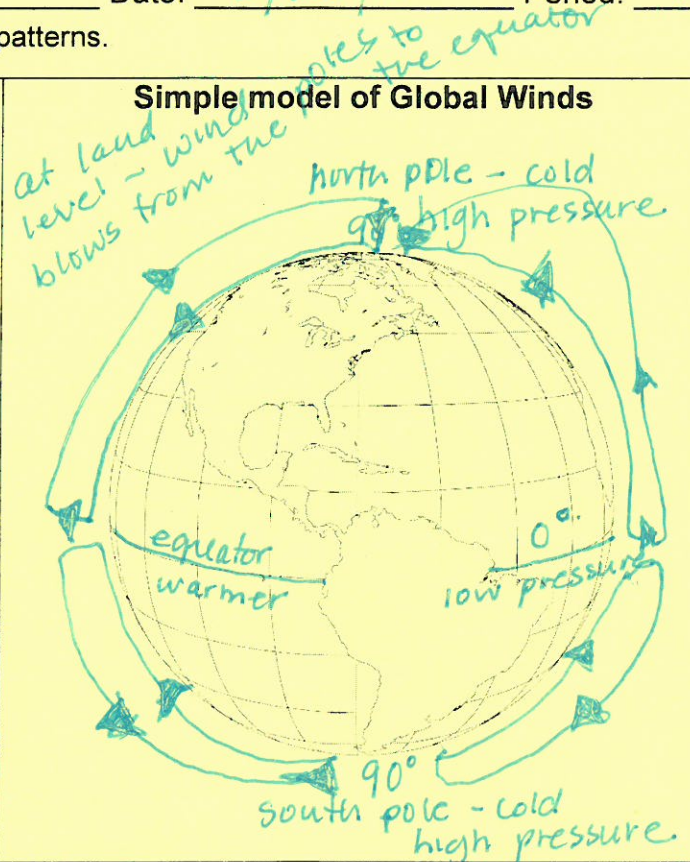 Date: Period:
patterns.
Simple model of Global Winds
at land
level - wind
blows from the poles to
the equator
north pole - cold
90° high pressure
equator
warmer
0°
low pressure
90°
south pole - cold
high pressure